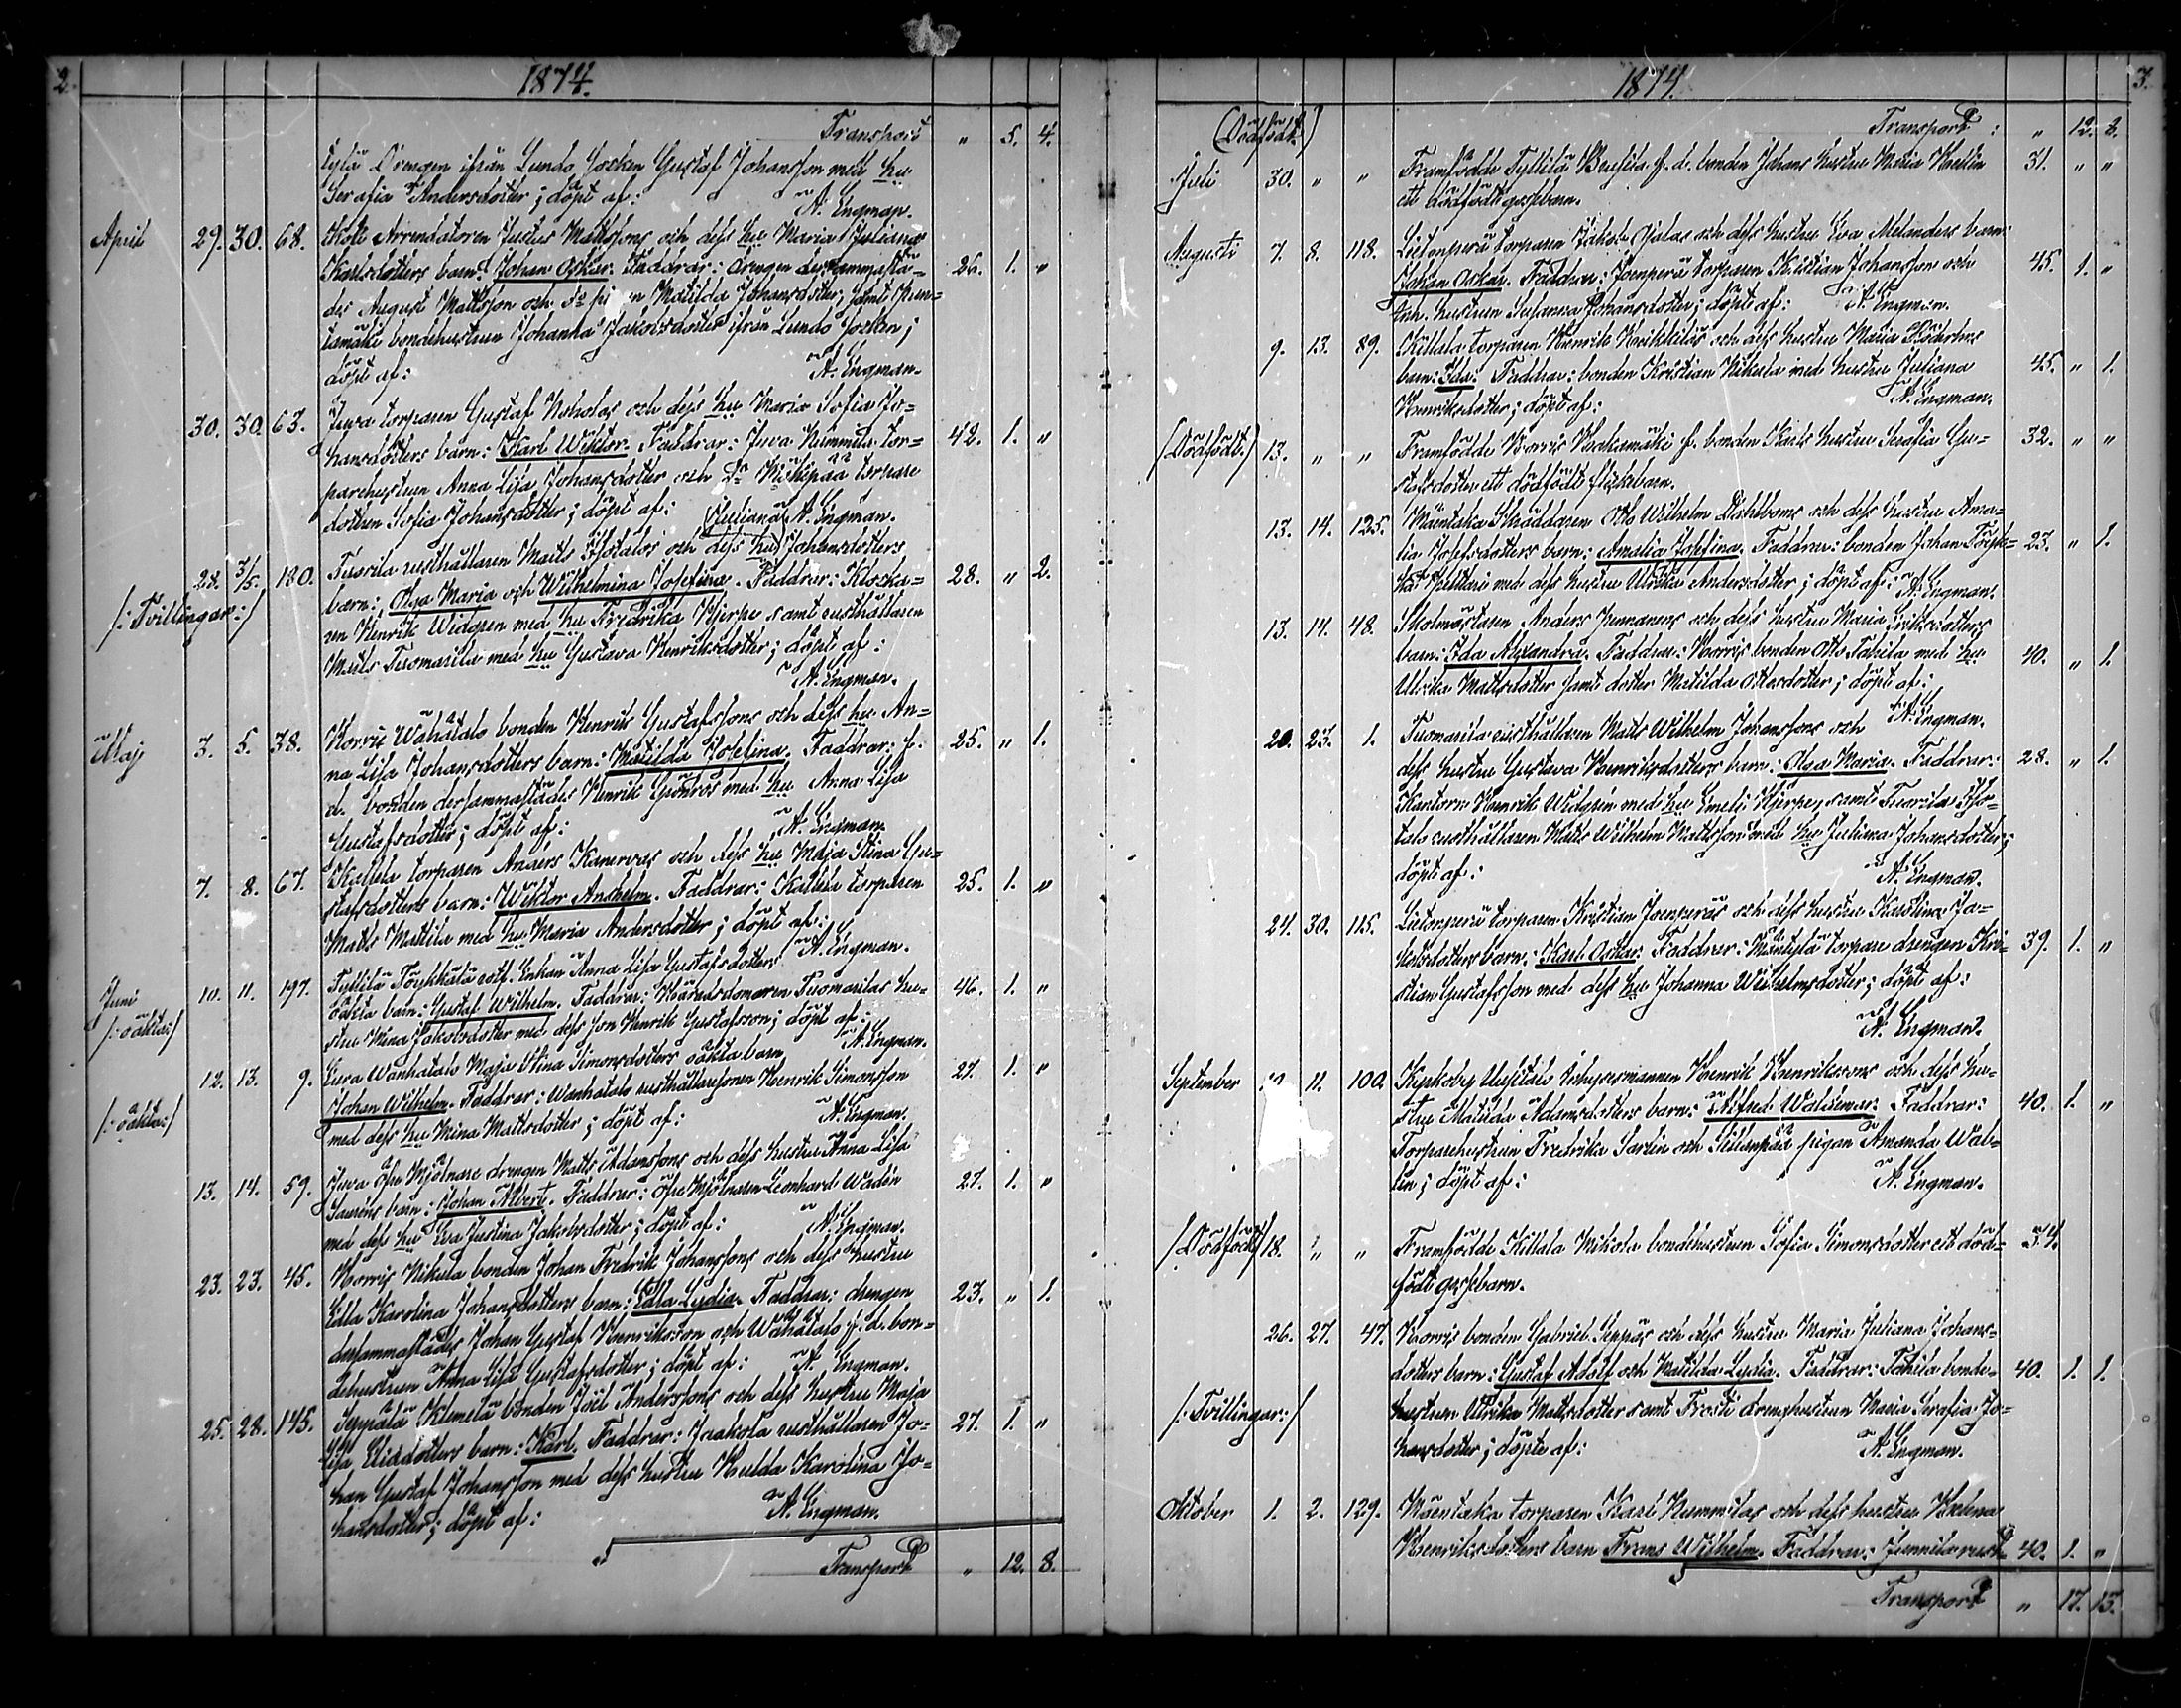 2.
1874.
Transport " 5. 4.
kylä Drengen ifrån Lundo Socken Gustaf Johansson med hu
Serafia Andersdotter; döpt af:
A. Engman.
April 29. 30. 68. Arrendatoren Justus Mattssons och dess hu Maria Juliana
Karlsdotters barn: Johan Oskar. Faddrar: drengen dersammastä- 26. 1. "
des August Mattsson och pigan Matilda Johansdotter, samt
bondehustrun Johanna Jakobsdotter ifrån Lundo Socken;
döpt af: A. Engman.
30. 30. 63. Juva torparen Gustaf och dess hu Maria Sofia Jo-
hansdotters barn: Karl Wiktor. Faddrar: Juva Nummila tor- 42. 1. "
parehustrun Anna Lisa Johansdotter och Do torpare
dottren Sofia Johansdotter; döpt af: A. Engman.
Juliana
28. 3/5. 180. rusthållaren Matts Isotalos och dess hu Johansdotters
/: Tvillingar :/ barn: Olga Maria och Wilhelmina Josefina. Faddrar: Klocka- 28. " 2.
ren Henrik Widgren med hu Fredrika Hjerpe samt rusthållaren
Matts Tuomarila med hu Gustava Henriksdotter; döpt af:
A. Engman.
Maj 3. 5. 38. Korris Wähätalo bonden Henrik Gustafssons och dess hu An-
na Lisa Johansdotters barn: Matilda Josefina. Faddrar: f. 25. " 1.
d. bonden dersammastädes Henrik Grönros med hu Anna Lisa
Gustafsdotter; döpt af: A. Engman.
7. 8. 67. torparen Anders Kanervas och dess hu Maja Stina Gu-
stafsdotters barn: Wiktor Anshelm. Faddrar: torparen 25. 1. "
Matts Mattila med hu Maria Andersdotter; döpt af:
A. Engman.
Juni 10. 11. 197. Tyllilä Töykkälä Enkan Anna Lisa Gustafsdotters
/: oäkta :/ oäkta barn: Gustaf Wilhelm. Faddrar: Häradsdomaren Tuomarilas hu- 46. 1. "
stru Mina Jakobsdotter med dess son Henrik Gustafsson; döpt af:
A. Engman.
12. 13. 9. Wanhatalo Maja Stina Simonsdotters oäkta barn
/: oäkta :/ Johan Wilhelm. Faddrar: Wanhatalo rusthållaresonen Henrik Simonsson 27. 1. "
med dess hu Mina Mattsdotter; döpt af: A. Engman.
13. 14. 59. Juva öfre Mjölnare drengen Matts Adamssons och dess hustru Anna Lisa
Saurens barn: Johan Albert. Faddrar: öfre Mjölnaren Leonhard Wadén 27. 1. "
med dess hu Eva Justina Jakobsdotter; döpt af: A. Engman.
23. 23. 45. Korris Nikula bonden Johan Fredrik Johanssons och dess hustru
Edla Karolina Johansdotters barn: Edla Lydia. Faddrar: drengen 23. " 1.
dersammastädes Johan Gustaf Henriksson och Wähätalo f. d. bon-
dehustrun Anna Lisa Gustafsdotter; döpt af: A. Engman.
25. 28. 145. Seppälä Klemelä bonden Joël Anderssons och dess hustru Maja
Lisa Eliedotters barn: Karl. Faddrar: Jaakola rusthållaren Jo- 27. 1. "
han Gustaf Johansson med dess hustru Hulda Karolina Jo-
hansdotter; döpt af: A. Engman.
Transport " 12. 8.
1874.
3.
(Dödfödt.) Transport: " 12. 8.
Juli 30. " " Framfödde Tyllilä f. d. bonden Johans hustru Maria 31. " "
ett dödfödt gossebarn.
Augusti 7. 8. 118. Lietonperä torparen Jakob Ojalas och dess hustru Eva Melanders barn:
Johan Oskar. Faddrar: Joenperä torparen Kristian Johansson och 45. 1. "
hustrun Susanna Johansdotter; döpt af: A. Engman.
9. 13. 89. Killala torparen Henrik Heikkiläs och dess hustru Maria
barn: Ida. Faddrar: bonden Kristian Nikula med hustru Juliana 45. " 1.
Henriksdotter; döpt af: A. Engman.
/Dödfödt./ 13. " " Framfödde Korris f. bonden Karls hustru Serafia Gu- 32. " "
stafsdotter ett dödfödt flickebarn.
13. 14. 125. Mäentaka Skräddaren Otto Wilhelm Dahlboms och dess hustru Ama-
lia Josefsdotters barn: Amalia Josefina. Faddrar: bonden Johan 23. " 1.
med dess hustru Ulrika Andersdotter; döpt af: A. Engman.
13. 14. 48. Skolmästaren Anders Hennanens och dess hustru Maria Eriksdotters
barn: Ida Alexandra. Faddrar: Korris bonden Otto Takila med hu 40. " 1.
Ulrika Mattsdotter samt dotter Matilda Ottosdotter; döpt af:
A. Engman.
20. 23. 1. Tuomarila rusthållaren Matts Wilhelm Johanssons och
dess hustru Gustava Henriksdotters barn: Olga Maria. Faddrar: 28. " 1.
Kantorn Henrik Widgrén med hu Emeli Hjerpe, samt Iso-
talo rusthållaren Matts Wilhelm Mattsson med hu Juliana Johansdotter;
döpt af: A. Engman.
24. 30. 115. Lietonperä torparen Kristian Joenperäs och dess hustru Karolina Ja-
kobsdotters barn: Karl Oskar. Faddrar: Mäntylä torpare drengen Kri- 39. 1. "
stian Gustafsson med dess hu Johanna Wilhelmsdotter; döpt af:
A. Engman.
September 11. 100. Kyrkoby Uusitalo Inhysesmannen Henrik Henrikssons och dess hu-
stru Matilda Adamsdotters barn: Alfred Waldemar. Faddrar: 40. 1. "
Torparehustrun Fredrika Sarlin och pigan Amanda Wal-
lin; döpt af: A. Engman.
/Dödfödt/ 18. " " Framfödde Killala Nikola bondehustrun Sofia Simonsdotter ett död- 34.
födt gossebarn.
26. 27. 47. Korris bonden Gabriel Seppäs och dess hustru Maria Juliana Johans-
dotters barn: Gustaf Adolf och Matilda Lydia. Faddrar: Takila bonde- 40. 1. 1.
/: Tvillingar :/ hustrun Ulrika Mattsdotter samt Prosti drenghustrun Maria Serafia Jo-
hansdotter; döpte af: A. Engman.
Oktober 1. 2. 129. Mäentaka torparen Karl Nummilas och dess hustru Helena
Henriksdotters barn Frans Wilhelm. Faddrar: Junnila rust- 40. 1. "
Transport " 17. 15.